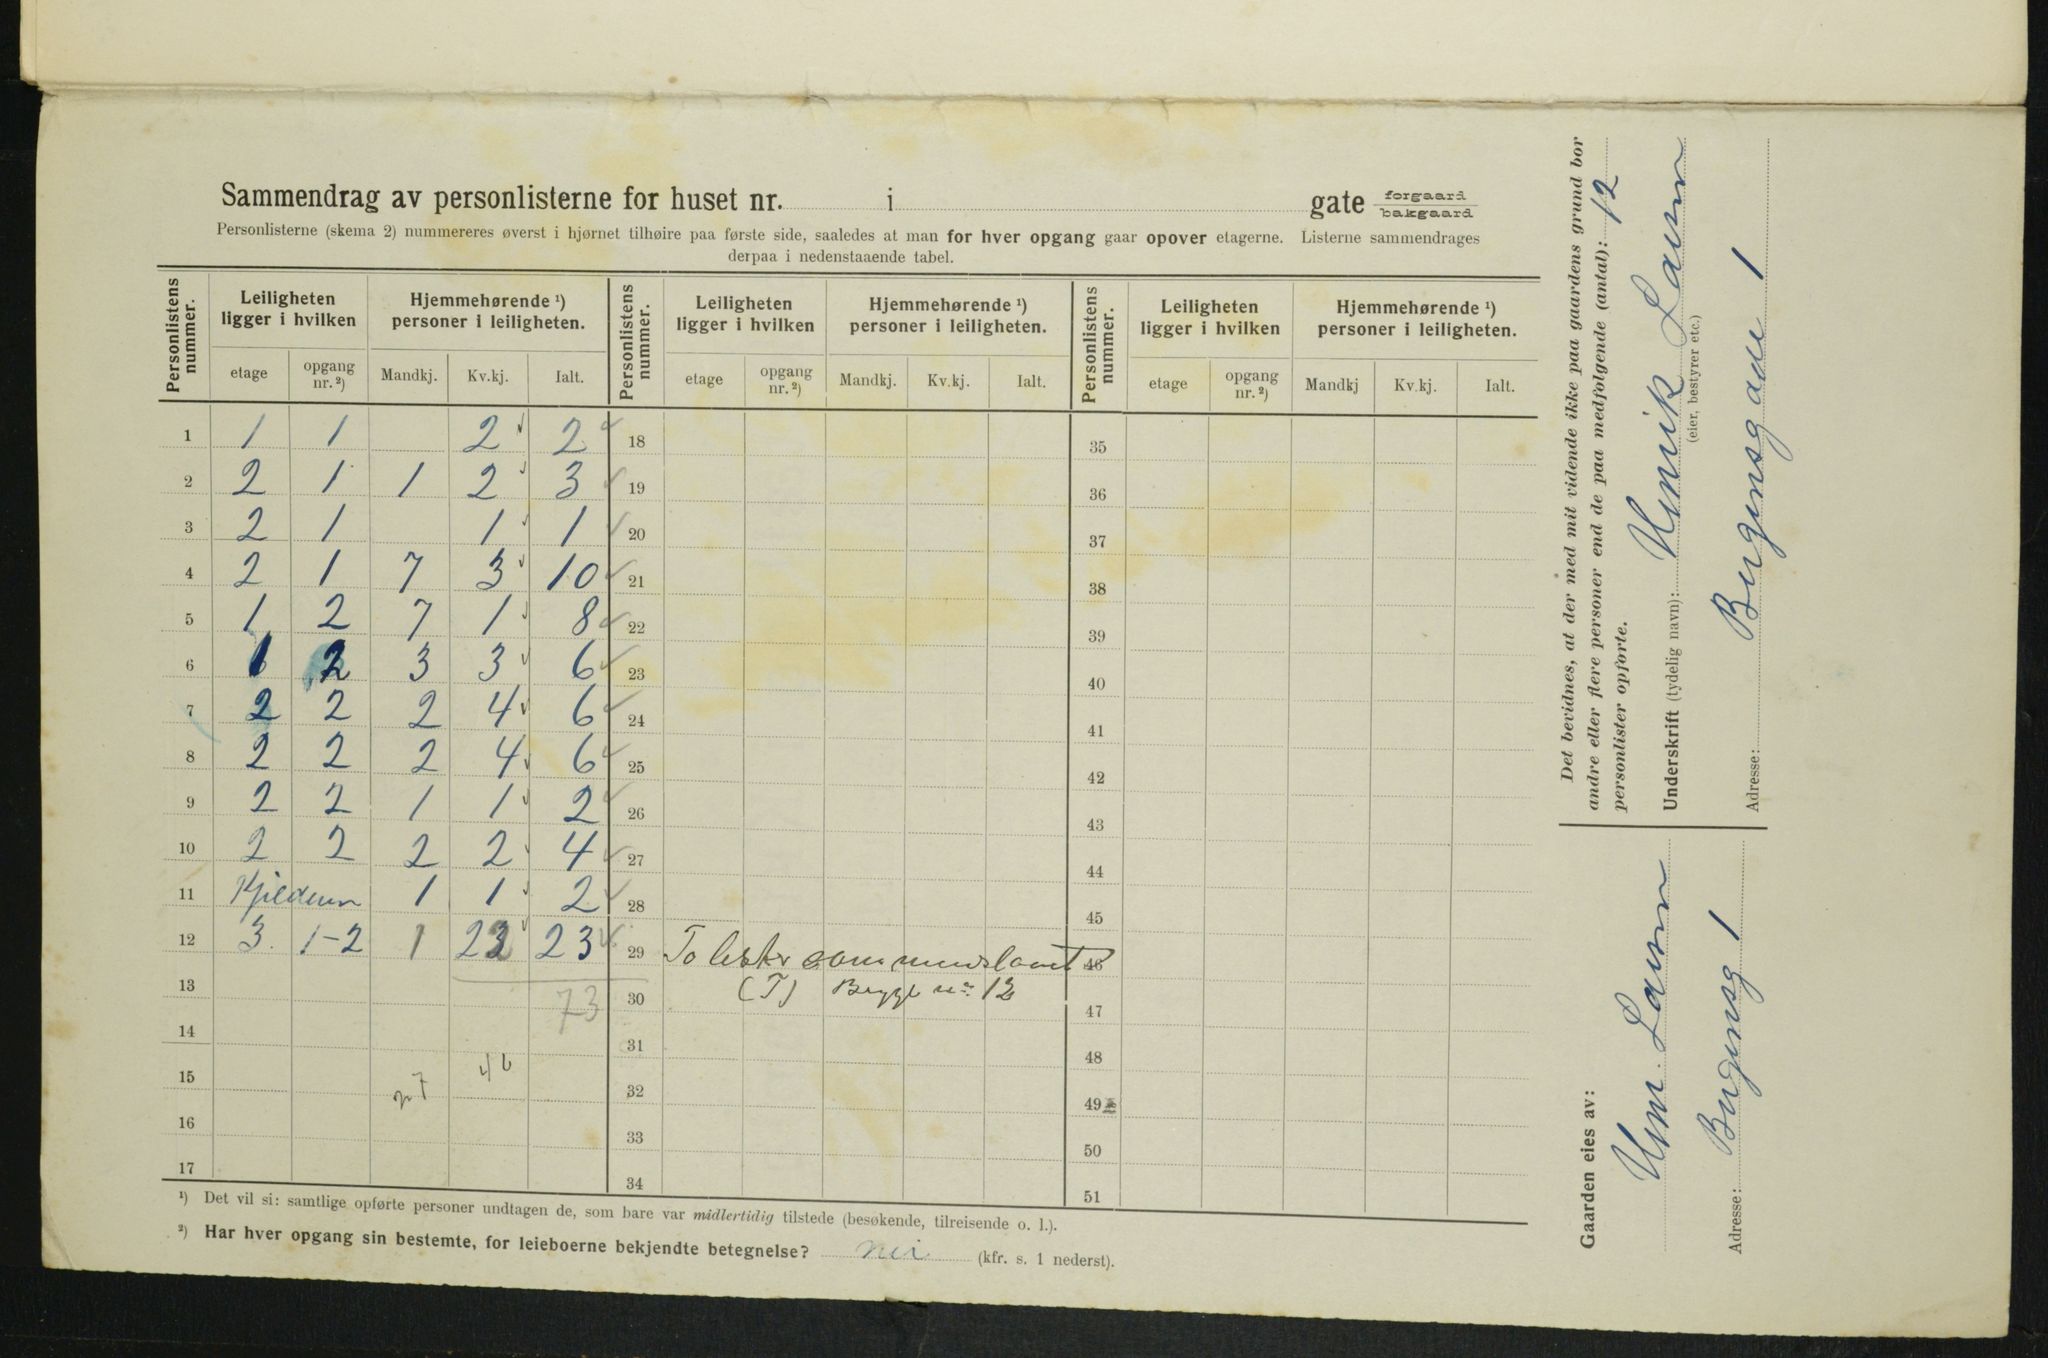 Sammendrag av personlisterne for huset nr. i gate forgaard bakgaard
Personlisterne (skema 2) nummereres øverst i hjørnet tilhøire paa første side, saaledes at man for hver opgang gaar opover etagerne. Listerne sammendrages
derpaa i nedenstaaende tabel.
Personlistens nummer. Leiligheten ligger i hvilken Hjemmehørende ¹) personer i leiligheten. Personlistens nummer. Leiligheten ligger i hvilken Hjemmehørende ¹) personer i leiligheten. Personlistens nummer. Leiligheten ligger i hvilken Hjemmehørende ¹) personer i leiligheten.
etage opgang nr. ²) Mandkj. Kv.kj. Ialt. etage opgang nr. ²) Mandkj. Kv.kj. Ialt. etage opgang nr. ²) Mandkj Kv.kj. Ialt.
1 1 1 2 2 18 35
2 2 1 1 2 3 19 36
3 2 1 1 1 20 37
4 2 1 7 3 10 21 38
5 1 2 7 1 8 22 39
6 1 2 3 3 6 23 40
7 2 2 2 4 6 24 41
8 2 2 2 4 6 25 42
9 2 2 1 1 2 26 43
10 2 2 2 2 4 27 44
11 Kjelderen 1 1 2 28 45
12 3. 1-2 1 22 23 29 To lister sammenslaaet 46
13 73 30 (T) Brygge nr 12 47
14 31 48
15 27 46 32 49
16 33 50
17 34 51
¹) Det vil si: samtlige opførte personer undtagen de, som bare var midlertidig tilstede (besøkende, tilreisende o. l.).
²) Har hver opgang sin bestemte, for leieboerne bekjendte betegnelse? nei (kfr. s. 1 nederst).
Det bevidnes, at der med mit vidende ikke paa gaardens grund bor
andre eller flere personer end de paa medfølgende (antal): 12
personlister opførte.
Underskrift (tydelig navn): Henrik Larsen
(eier, bestyrer etc.)
Adresse: Bergensgade 1
Gaarden eies av:
Hen. Larsen
Adresse: Bergensg 1